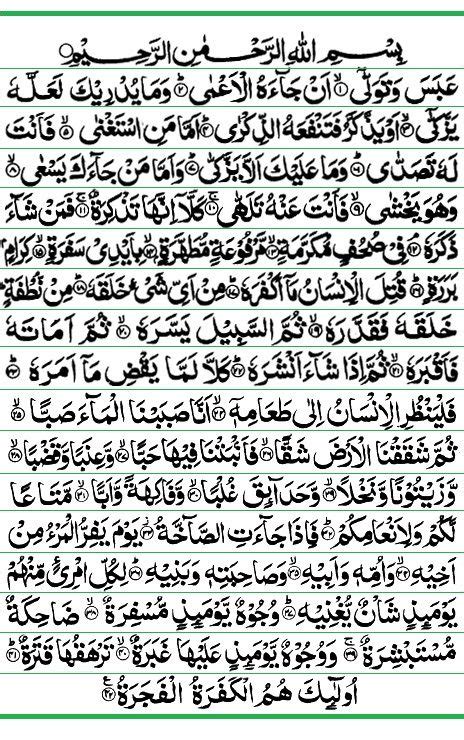 بِسْمِ اللهِ الرَّحْمٰنِ الرَّحِيْمِ
عَبَسَ وَتَوَلّٰىۤ ۙ‏﴿۱﴾ اَنْ جَآءَهُ الْاَعْمٰىؕ‏﴿۲﴾ وَمَا يُدْرِيْكَ لَعَلَّهٗ
يَزَّكّٰٓىۙ‏﴿۳﴾ اَوْ يَذَّكَّرُ فَتَنْفَعَهُ الذِّكْرٰىؕ‏﴿۴﴾ اَمَّا مَنِ اسْتَغْنٰىۙ‏﴿۵﴾ فَاَنْتَ
لَهٗ تَصَدّٰىؕ‏﴿۶﴾ وَمَا عَلَيْكَ اَلَّا يَزَّكّٰىؕ‏﴿۷﴾ وَاَمَّا مَنْ جَآءَكَ يَسْعٰىۙ‏﴿۸﴾
وَهُوَ يَخْشٰىۙ‏﴿۹﴾ فَاَنْتَ عَنْهُ تَلَهّٰىۚ‏﴿۱۰﴾ كَلَّاۤ اِنَّهَا تَذْكِرَةٌ ۚ‏﴿۱۱﴾ فَمَنْ شَآءَ
ذَكَرَهٗۘ‏﴿۱۲﴾ فِىْ صُحُفٍ مُّكَرَّمَةٍۙ‏﴿۱۳﴾ مَّرْفُوْعَةٍ مُّطَهَّرَةٍۭۙ‏﴿۱۴﴾ بِاَيْدِىْ سَفَرَةٍۙ‏﴿۱۵﴾ كِرَامٍۭ
بَرَرَةٍؕ‏﴿۱۶﴾ قُتِلَ الْاِنْسَانُ مَاۤ اَكْفَرَهٗؕ‏﴿۱۷﴾ مِنْ اَىِّ شَىْءٍ خَلَقَهٗؕ‏﴿۱۸﴾ مِنْ نُّطْفَةٍؕ
خَلَقَهٗ فَقَدَّرَهٗۙ‏﴿۱۹﴾ ثُمَّ السَّبِيْلَ يَسَّرَهٗۙ‏﴿۲۰﴾ ثُمَّ اَمَاتَهٗ
فَاَقْبَرَهٗۙ‏﴿۲۱﴾ ثُمَّ اِذَا شَآءَ اَنْشَرَهٗؕ‏﴿۲۲﴾ كَلَّا لَمَّا يَقْضِ مَاۤ اَمَرَهٗؕ‏﴿۲۳﴾
فَلْيَنْظُرِ الْاِنْسَانُ اِلٰى طَعَامِهٖۤۙ‏﴿۲۴﴾ اَنَّا صَبَبْنَا الْمَآءَ صَبًّاۙ‏﴿۲۵﴾
ثُمَّ شَقَقْنَا الْاَرْضَ شَقًّاۙ‏﴿۲۶﴾ فَاَنْۢبَتْنَا فِيْهَا حَبًّاۙ‏﴿۲۷﴾ وَّعِنَبًا وَّقَضْبًاۙ‏﴿۲۸﴾
وَّزَيْتُوْنًا وَّنَخْلًاۙ‏﴿۲۹﴾ وَّحَدَآئِقَ غُلْبًاۙ‏﴿۳۰﴾ وَّفَاكِهَةً وَّاَبًّاۙ‏﴿۳۱﴾ مَّتَاعًا
لَّكُمْ وَلِاَنْعَامِكُمْؕ‏﴿۳۲﴾ فَاِذَا جَآءَتِ الصَّآخَّةُ‏﴿۳۳﴾ يَوْمَ يَفِرُّ الْمَرْءُ مِنْ
اَخِيْهِۙ‏﴿۳۴﴾ وَاُمِّهٖ وَاَبِيْهِۙ‏﴿۳۵﴾ وَصَاحِبَتِهٖ وَبَنِيْهِؕ‏﴿۳۶﴾ لِكُلِّ امْرِیءٍ مِّنْهُمْ
يَوْمَئِذٍ شَاْنٌ يُّغْنِيْهِؕ‏﴿۳۷﴾ وُجُوْهٌ يَّوْمَئِذٍ مُّسْفِرَةٌۙ‏﴿۳۸﴾ ضَاحِكَةٌ
مُّسْتَبْشِرَةٌۚ‏﴿۳۹﴾ وَوُجُوْهٌ يَّوْمَئِذٍ عَلَيْهَا غَبَرَةٌۙ‏﴿۴۰﴾ تَرْهَقُهَا قَتَرَةٌؕ‏﴿۴۱﴾
اُولٰٓئِكَ هُمُ الْكَفَرَةُ الْفَجَرَةُ‏﴿۴۲﴾